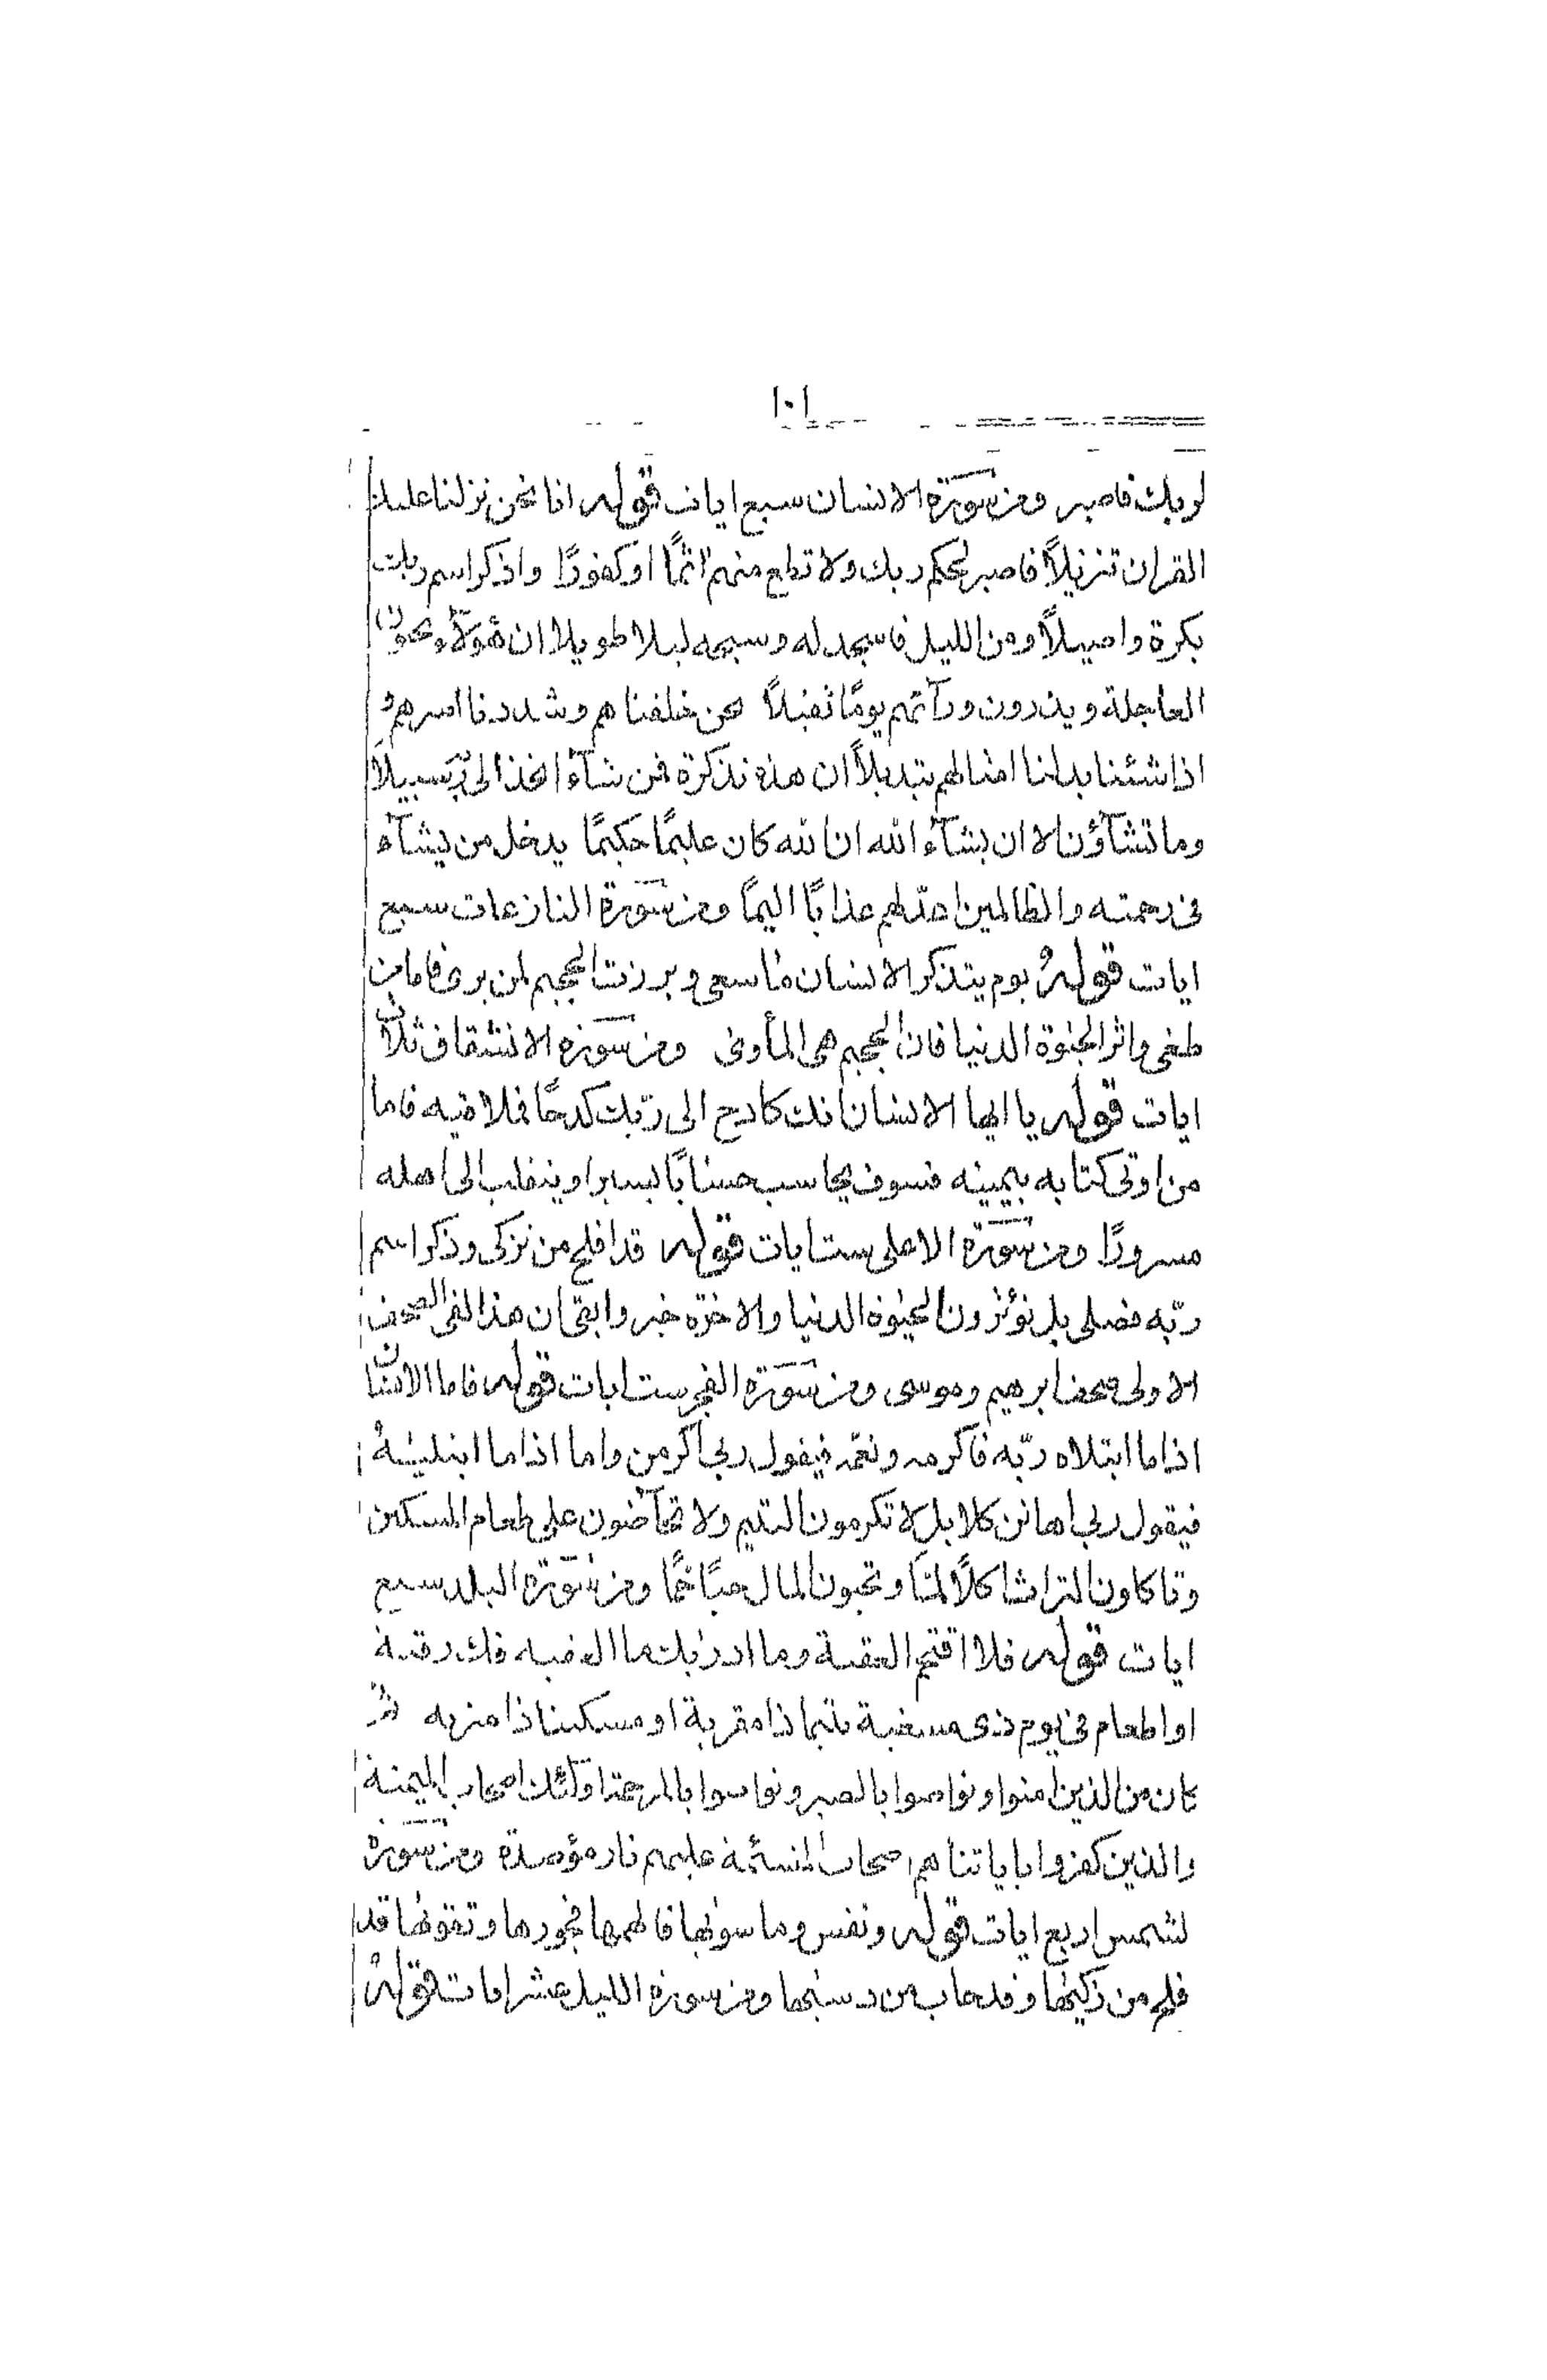 ١٠١
لربك فاصبر ومن سورة الانسان سبع ايات قوله انا نحن نزلنا عليك
القران تنزيلاً فاصبر لحكم ربك ولا تطع منهم اثمًا او كفورًا واذكر اسم ربك
بكرة واصيلاً ومن الليل فاسجد له وسبحه ليلا طويلا ان هؤلآء يحبون
العاجلة ويذرون ورآئهم يومًا ثقيلاً نحن خلقناهم وشددنا اسرهم و
اذا شئنا بدلنا امثالهم تبديلاً ان هذه تذكرة فمن شآء اتخذ الى ربه سبيلاً
وما تشآؤن الا ان يشآء الله ان الله كان عليمًا حكيمًا يدخل من يشآء
فى رحمته والظالمين اعدّ لهم عذابًا اليمًا ومن سورة النازعات سبع
ايات قوله يوم يتذكر الانسان ما سعى وبرزت الجحيم لمن يرى فاما من
طغى واثر الحيوة الدنيا فان الجحيم هى المأوى ومن سورة الانشقاق ثلاث
ايات قوله يا ايها الانسان انك كادح الى ربّك كدحًا فملاقيه فاما
من اوتى كتابه بيمينه فسوف يحاسب حسابًا يسيرا وينقلب الى اهله
مسرورًا ومن سورة الاعلى ست ايات قوله قد افلح من تزكى وذكر اسم
ربّه فصلى بل تؤثرون الحيوة الدنيا والاخرة خير وابقى ان هذا لفى الصحف
الاولى صحف ابرهيم وموسى ومن سورة الفجر ست ايات قوله فاما الانسان
اذا ما ابتلاه ربّه فاكرمه ونعّمه فيقول ربى اكرمن واما اذا ما ابتليه
فيقول ربى اهانن كلا بل لا تكرمون اليتيم ولا تحآضون على طعام المسكين
وتاكلون التراث اكلاً لمًّا وتحبون المال حبًّا جمًّا ومن سورة البلد سبع
ايات قوله فلا اقتحم العقبة وما ادريك ما العقبه فك رقبة
او اطعام فى يوم ذى مسغبة يتيما ذا مقربة او مسكينا ذا متربه ثم
كان من الذين امنوا وتواصوا بالصبر وتواصوا بالمرحمة اولٰئك اصحاب الميمنة
والذين كفروا باياتنا هم اصحاب المشئمة عليهم نار مؤصدة ومن سورة
لشمس اربع ايات قوله ونفس وما سويها فالهمها فجورها وتقويها قد
فلح من زكيها وقد خاب من دسيها ومن سورة الليل عشر ايات قوله